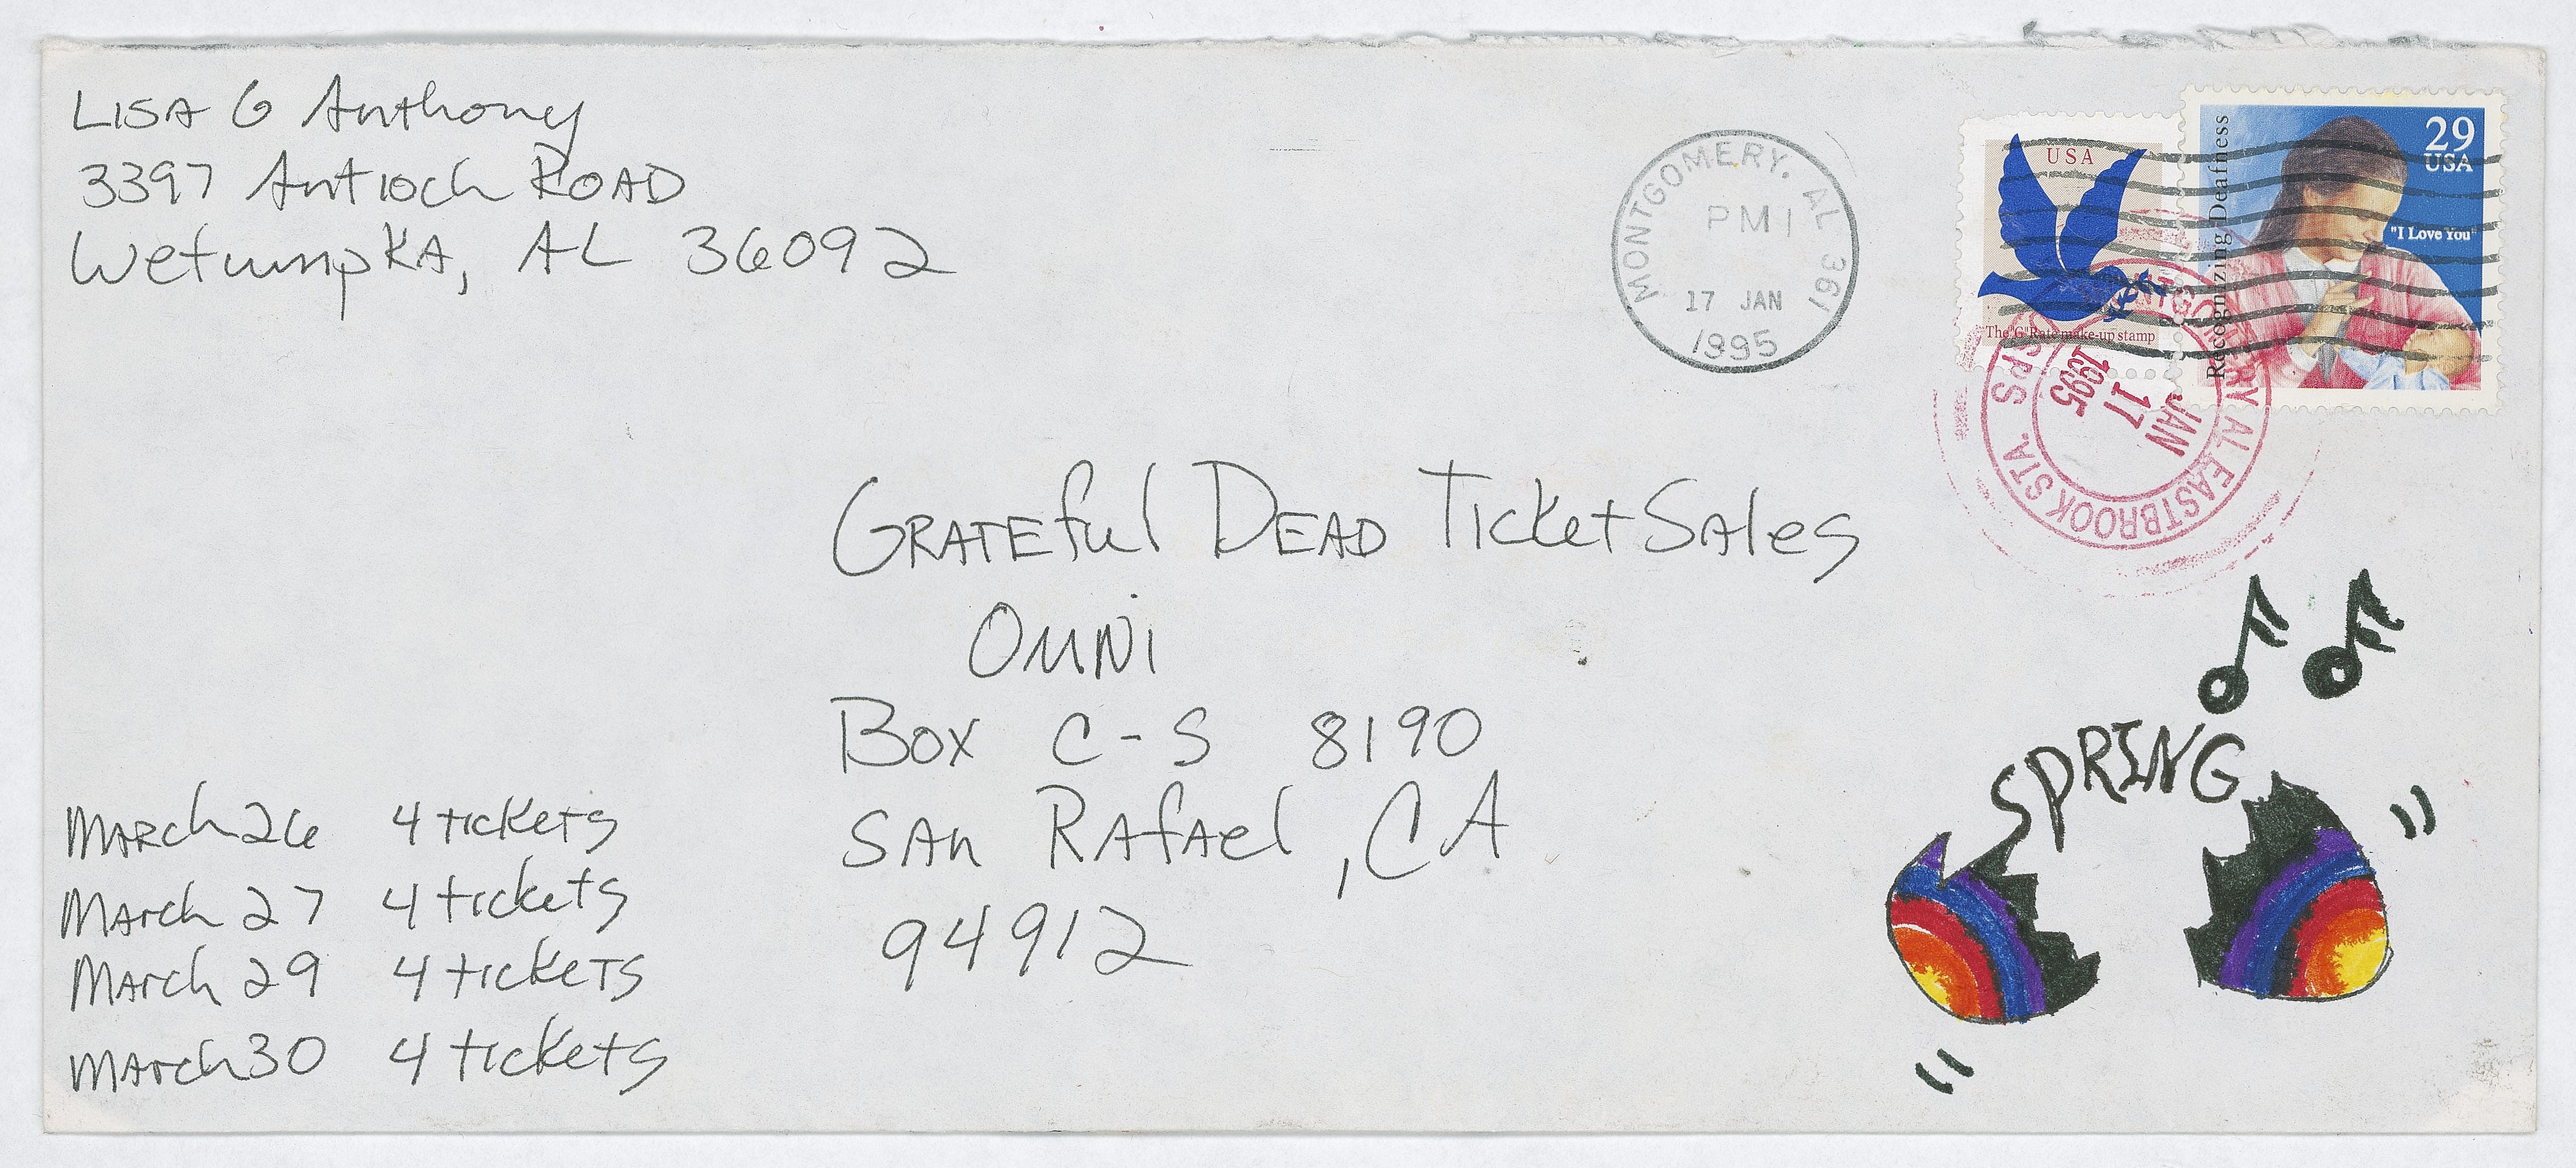 LISA G Anthony
3397 Antioch ROAD
Wetumpka, AL 36092
MONTGOMERY, AL 361
PM
17 JAN
1995
USA
The "G" Rate make-up stamp
Recognizing Deafness
29
USA
"I Love You"
AL EASTBROOK STA.
USPS
JAN
17
1995
GRATEful DEAD Ticket SAles
OMNI
Box C-S 8190
SAn RAfAel, CA
94912
MARch 26 4 tickets
MArch 27 4 tickets
MArch 29 4 tickeTs
MArch 30 4 tickets
SPRING